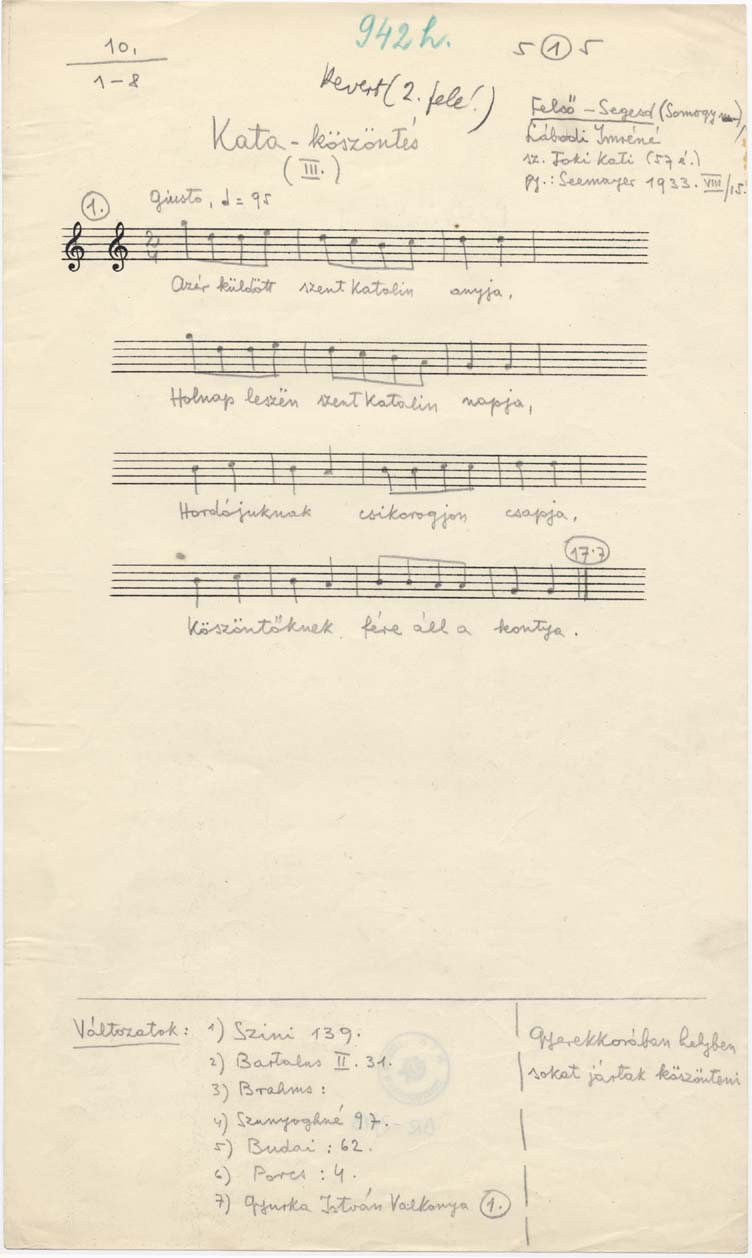 10.
1-8
942h.
5 ① 5
Kevert (2. fele!)
Felső-Segesd (Somogy m.)
Lábodi Imréné
sz. Toki Kati (57 é.)
gy.: Seemayer 1933. VIII/15.
Kata-köszöntés
(III.)
1.
Giusto, ♩= 95
2/4
Azér küldött szent Katalin anyja,
Holnap leszën szent Katalin napja,
Hordójuknak csikorogjon csapja,
17.7
Köszöntőknek fére áll a kontya.
Változatok: 1) Szini 139.
2) Bartalus II. 31.
3) Brahms:
4) Szunyoghné 97.
5) Budai: 62.
6) Porcs: 4.
7) Gyurka István Valkonya 1.
Gyerekkorában helyben
sokat jártak köszönteni